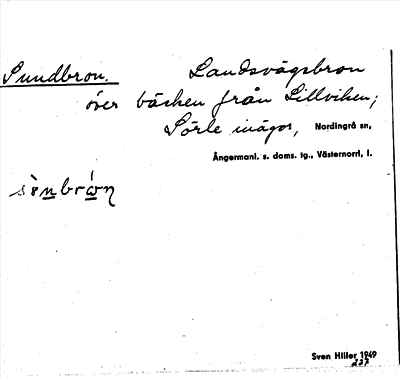 Sundbron. Landsvägsbron
över bäcken från Lillviken;
Sörle inägor, Nordingrå sn,
Ångermanl. s. doms. tg., Västernorrl. l.
Sven Hiller 1949
237